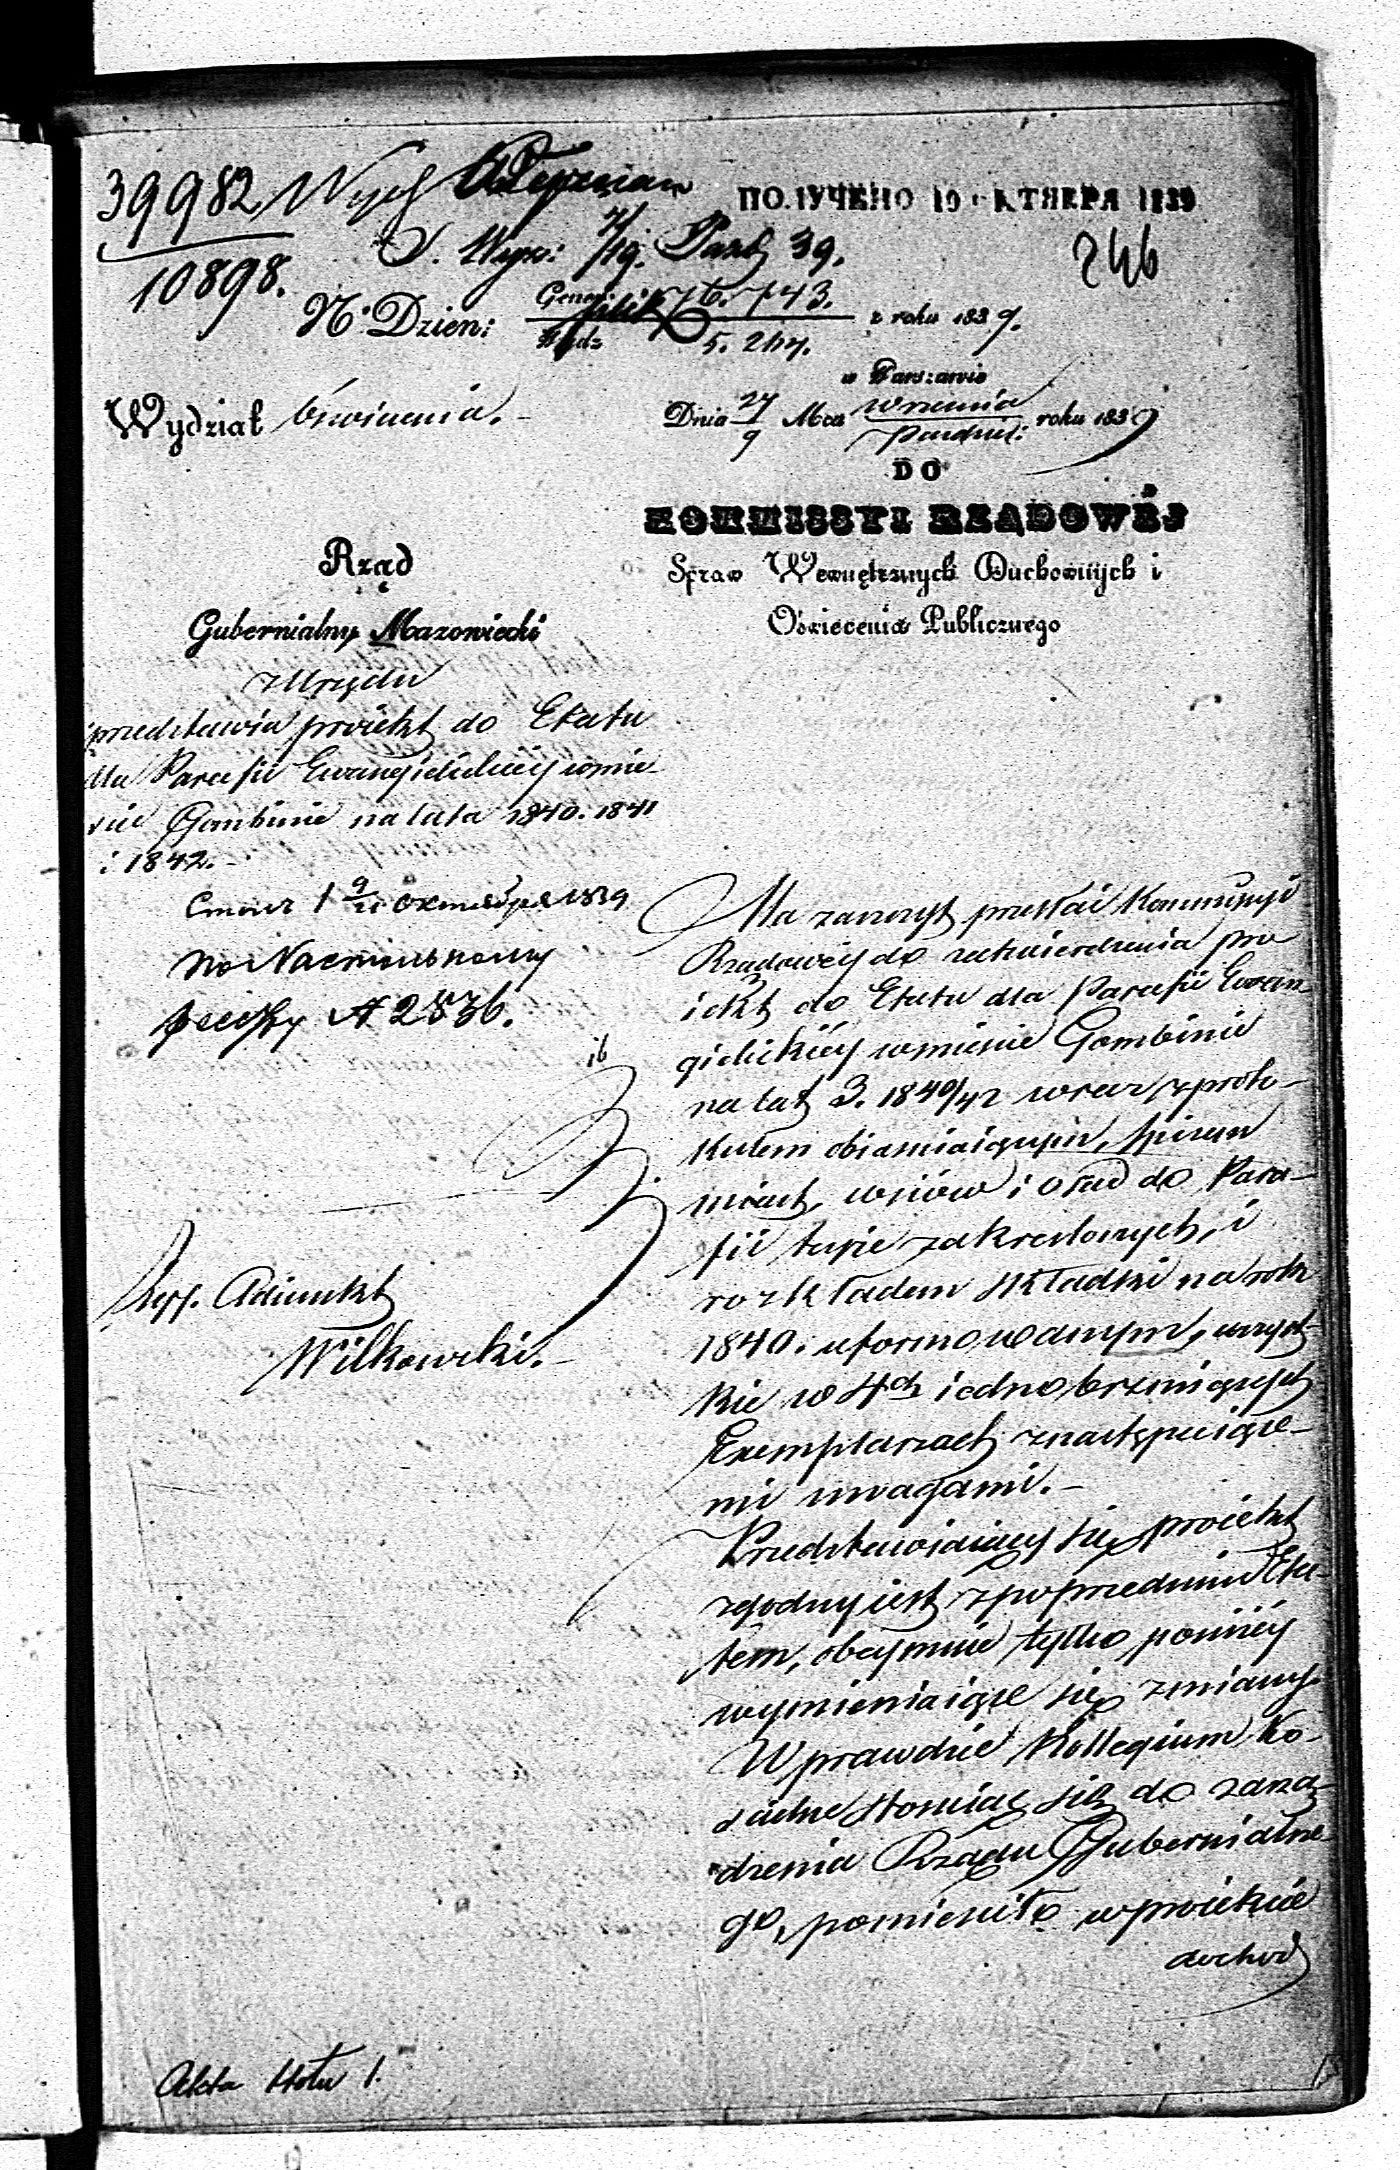 39982 Wyzn
10898.
ПОЛУЧЕНО 19 ОКТЯБРЯ 1839
7/19. Paźd 39.
246
N. Dzien: 76.743. z roku 1839.
5. 247.
w Warszawie
Wydział Oświecenia.
Dnia 27/9 Mca Września/Paździer: roku 1839
DO
KOMMISSYI RZĄDOWÉJ
Spraw Wewnętrznych Duchownych i
Oświecenia Publicznego
Rząd
Gubernialny Mazowiecki
z Urzędu
przedstawia proiekt do Etatu
dla Parafii Ewangielickiéy w mie-
ście Gombinie na lata 1840. 1841
i 1842.-
1839
№ 2836.
Ma zaszczyt przesłać Kommissyi
Rządowéy do zatwierdzenia pro
iekt do Etatu dla Parafii Ewan-
gielickiéy w mieście Gombinie
na lat 3. 1840/42 wraz z proto-
kułem obiaśniaiącym, spisem
miast, wsiów i osad do Para-
fii teyże zakreślonych, i
rozkładem składki na rok
1840. uformowanym, wszyst-
kie w 4ch iednobrzmiących
Exemplarzach z następuiące-
mi uwagami.-
Przedstawiaiący się proiekt
zgodny iest z poprzednim Eta-
tem, obeymuie tylko poniżéy
wymieniaiące się zmiany.
Wprawdzie Kollegium Ko-
ścielne stosuiąc się do zarzą-
dzenia Rządu Gubernialne-
go, pomieściło w proiekcie
dochod
Asss. Adiunkt
Wilkowski.-
Akta stołu 1.